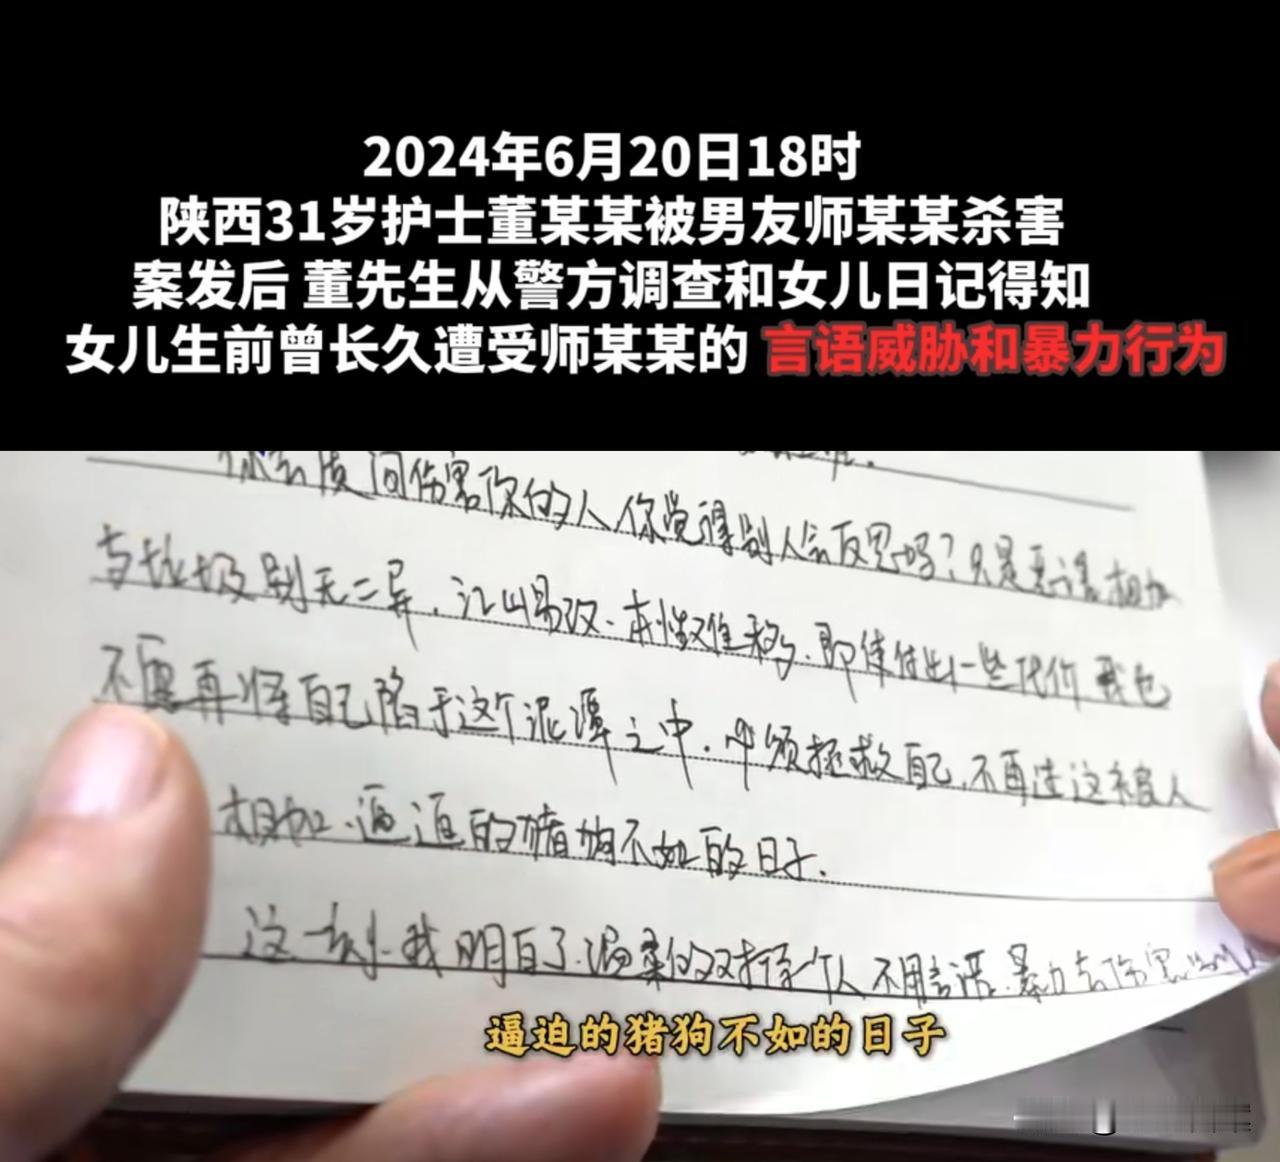 2024年6月20日18时
陕西31岁护士董某某被男友师某某杀害
案发后 董先生从警方调查和女儿日记得知
女儿生前曾长久遭受师某某的 言语威胁和暴力行为
问伤害你的人,你觉得别人会反思吗?只是恶语相加
与垃圾别无二异,江山易改、本性难移,即使付出一些代价 我也
不愿再将自己陷于这个泥潭之中,必须拯救自己,不再过这被人
相加、逼迫的猪狗不如的日子.
这一刻,我明白了,温柔的对待一个人 不用言语、暴力去伤害
逼迫的猪狗不如的日子